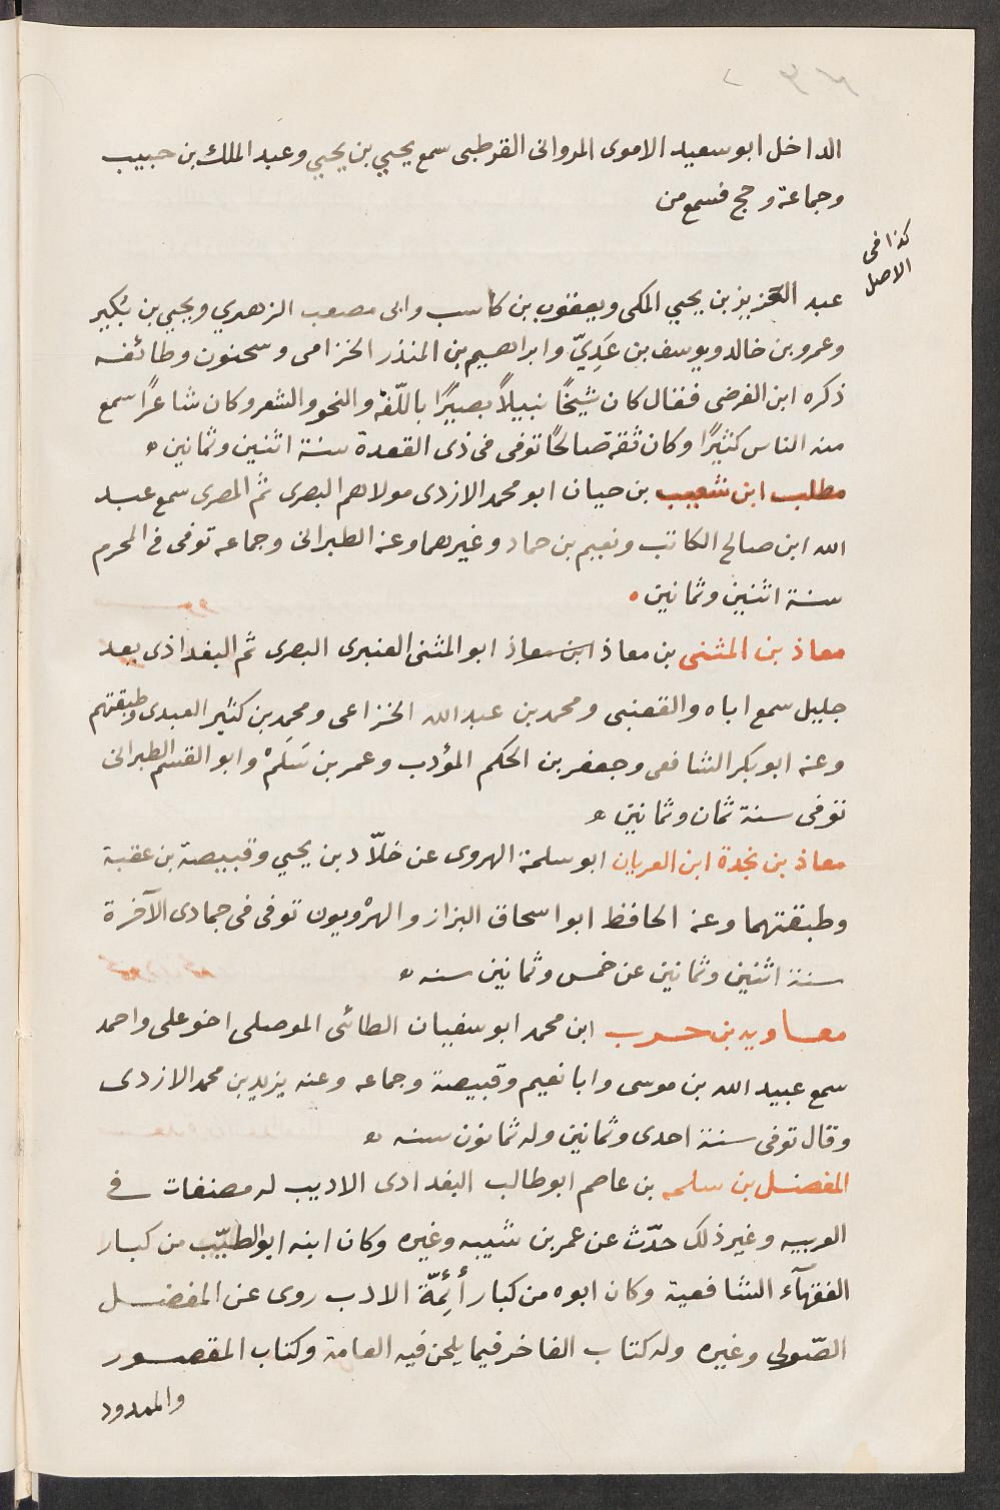 الداخل ابو سعيد الاموى المروانى القرطبى سمع يحيى بن يحيى وعبد الملك بن حبيب
وجماعة وحج فسمع من
كذا فى
الاصل
عبد العزيز بن يحيى المكى ويعقوب بن كاسب وابى مصعب الزهدي ويحيى بن بُكير
وعمرو بن خالد ويوسف بن عَدِيّ وابراهيم بن المنذر الخزامى وسحنون وطائفه
ذكره ابن الفرضى فقال كان شيخًا نبيلاً بصيرًا باللّغة والنحو والشعر وكان شاعرًا سمع
منه الناس كثيرًا وكان ثقة صالحًا توفى فى ذى القعدة سنة اثنين وثمانين ه
مطلب ابن شعيب بن حيان ابو محمد الازدى مولاهم البصرى ثم المصرى سمع عبد
الله ابن صالح الكاتب ونعيم بن حماد وغيرهما وعنه الطبرانى وجماعه توفى فى المحرم
سنة اثنين وثمانين ه
معاذ بن المثنى بن معاذ ابن معاذ ابو المثنى العنبرى البصرى ثم البغداذى بعد
جليل سمع اباه والقعنبى ومحمد بن عبد الله الخزاعى ومحمد بن كثير العبدى وطبقتهم
وعنه ابو بكر الشافعى وجعفر بن الحكم المؤدب وعمر بن سَلَمْ وابو القسم الطبرانى
توفى سنة ثمان وثمانين ه
معاذ بن نجدة ابن العريان ابو سلمة الهروى عن خلاّد بن يحيى وقبيصة بن عقبة
وطبقتهما وعنه الحافظ ابو اسحاق البزاز والهرْويون توفى فى جمادى الآخرة
سنة اثنين وثمانين عن خمس وثمانين سنه ه
معاويه بن حرب ابن محمد ابو سفيان الطائى الموصلى اخو على واحمد
سمع عبيد الله بن موسى وابا نعيم وقبيصة وجماعه وعنه يزيد بن محمد الازدى
وقال توفى سنة احدى وثمانين وله ثمانون سنه ه
المفضل بن سلمه بن عاصم ابو طالب البغدادى الاديب له مصنفات فى
العربيه وغير ذلك حدّث عن عمر بن شبيه وغيره وكان ابنه ابو الطيّب من كبار
الفقهآء الشافعية وكان ابوه من كبار أئمّة الادب روى عن المفضل
الصّولي وغيره وله كتاب الفاخر فيما يلحن فيه العامة وكتاب المقصور
والممدود